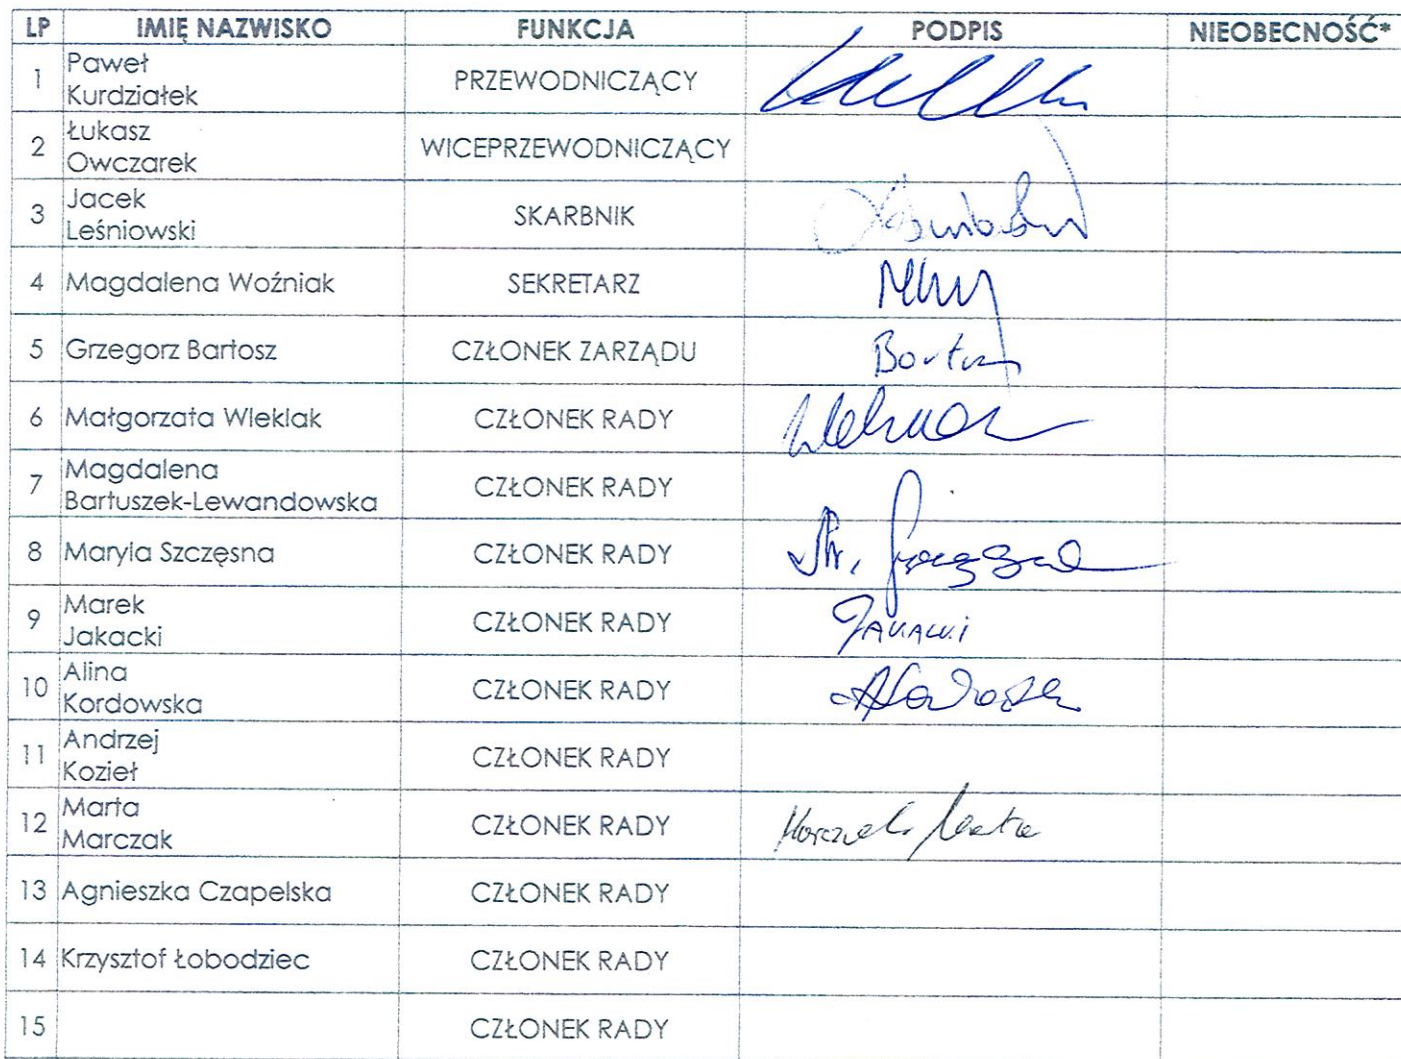 LP IMIĘ NAZWISKO FUNKCJA PODPIS NIEOBECNOŚĆ*
1 Paweł
Kurdziałek PRZEWODNICZĄCY
2 Łukasz
Owczarek WICEPRZEWODNICZĄCY
3 Jacek
Leśniowski SKARBNIK
4 Magdalena Woźniak SEKRETARZ
5 Grzegorz Bartosz CZŁONEK ZARZĄDU
6 Małgorzata Wieklak CZŁONEK RADY
7 Magdalena
Bartuszek-Lewandowska CZŁONEK RADY
8 Maryla Szczęsna CZŁONEK RADY
9 Marek
Jakacki CZŁONEK RADY Jakacki
10 Alina
Kordowska CZŁONEK RADY
11 Andrzej
Kozieł CZŁONEK RADY
12 Marta
Marczak CZŁONEK RADY Marczak Marta
13 Agnieszka Czapelska CZŁONEK RADY
14 Krzysztof Łobodziec CZŁONEK RADY
15 CZŁONEK RADY